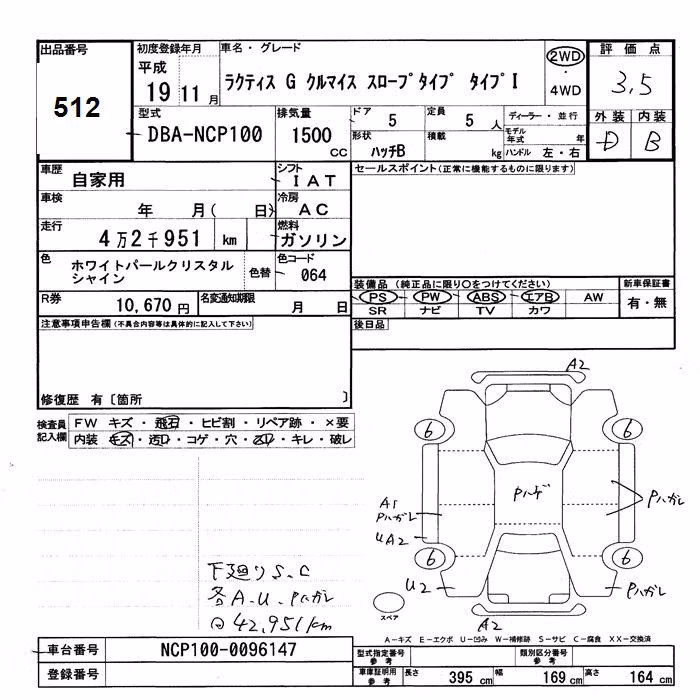 出品番号
512
初度登録年月
平成
19 11 月
車名・グレード
ラクティス G クルマイス スロープタイプ タイプI
2WD
・
4WD
評価点
3.5
外装 内装
D B
型式
DBA-NCP100
排気量
1500
CC
ドア
5
定員
5 人
形状
ハッチB
積載
kg
ディーラー・並行
モデル年式 年
ハンドル 左・右
車歴
自家用
シフト
IAT
車検
年 月( 日)
冷房
AC
走行
4万2千951 km
燃料
ガソリン
色
ホワイトパールクリスタル
シャイン
色替
色コード
064
R券
10,670円
名変通知期限
月 日
セールスポイント(正常に機能するものに限ります)
装備品 (純正品に限り○をつけてください)
PS PW ABS エアB AW
SR ナビ TV カワ
新車保証書
有・無
後日品
注意事項申告欄(不具合内容等は具体的に記入して下さい)
修復歴 有〔箇所 〕
検査員
記入欄
FW キズ・飛石・ヒビ割・リペア跡・×要
内装 キズ・汚レ・コゲ・穴・スレ・キレ・破レ
下廻りS.C
各A.U.Pハガレ
◘42,951km
A2
6
6
Pハゲ
A1
Pハガレ
UA2
Pハガレ
6
6
U2
Pハガレ
A2
スペア
A-キズ E-エクボ U-凹み W-補修跡 S-サビ C-腐食 XX-交換済
車台番号
NCP100-0096147
登録番号
型式指定番号
参考
類別区分番号
参考
車庫証明用
参考
長さ 395 cm
幅 169 cm
高さ 164 cm